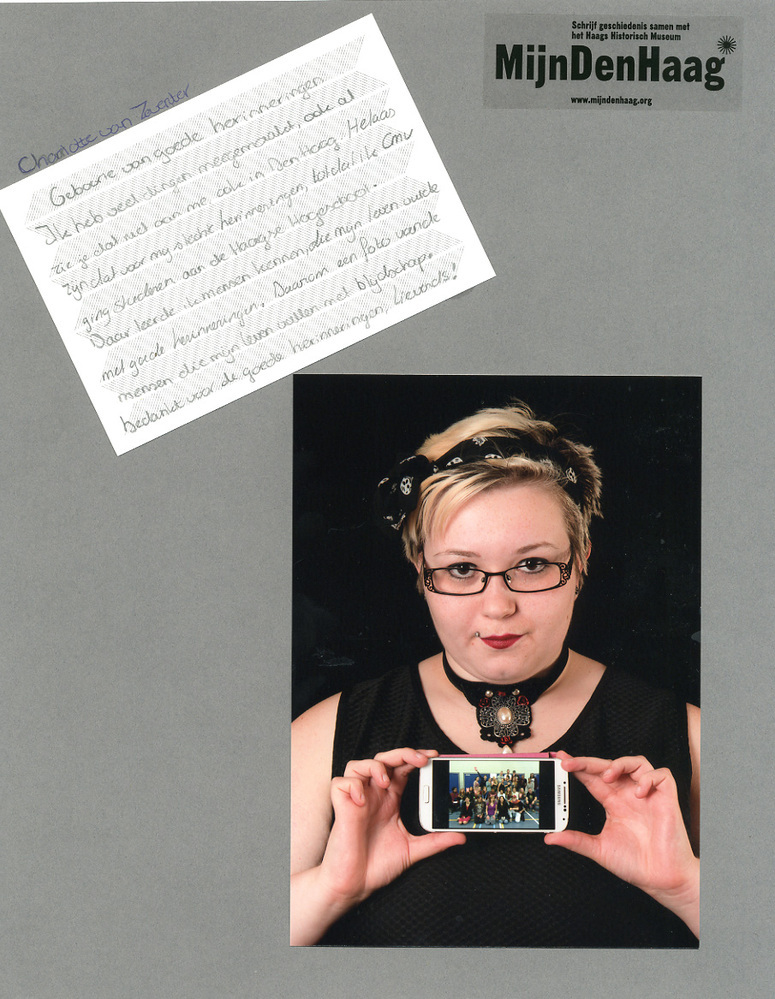 Schrijf geschiedenis samen met
het Haags Historisch Museum
MijnDenHaag
www.mijndenhaag.org
Charlotte van
Geboorte van goede herinneringen
Ik heb veel dingen meegemaakt, ook al
zie je dat niet aan me, ook in Den Haag. Helaas
zijn dat voor mij slechte herinneringen, totdat ik CMV
ging studeren aan de Haagse Hogeschool.
Daar leerde ik mensen kennen, die mijn leven vulde
met goede herinneringen. Daarom een foto van de
mensen die mijn leven vullen met blijdschap.
bedankt voor de goede herinneringen, lieverds!
SAMSUNG